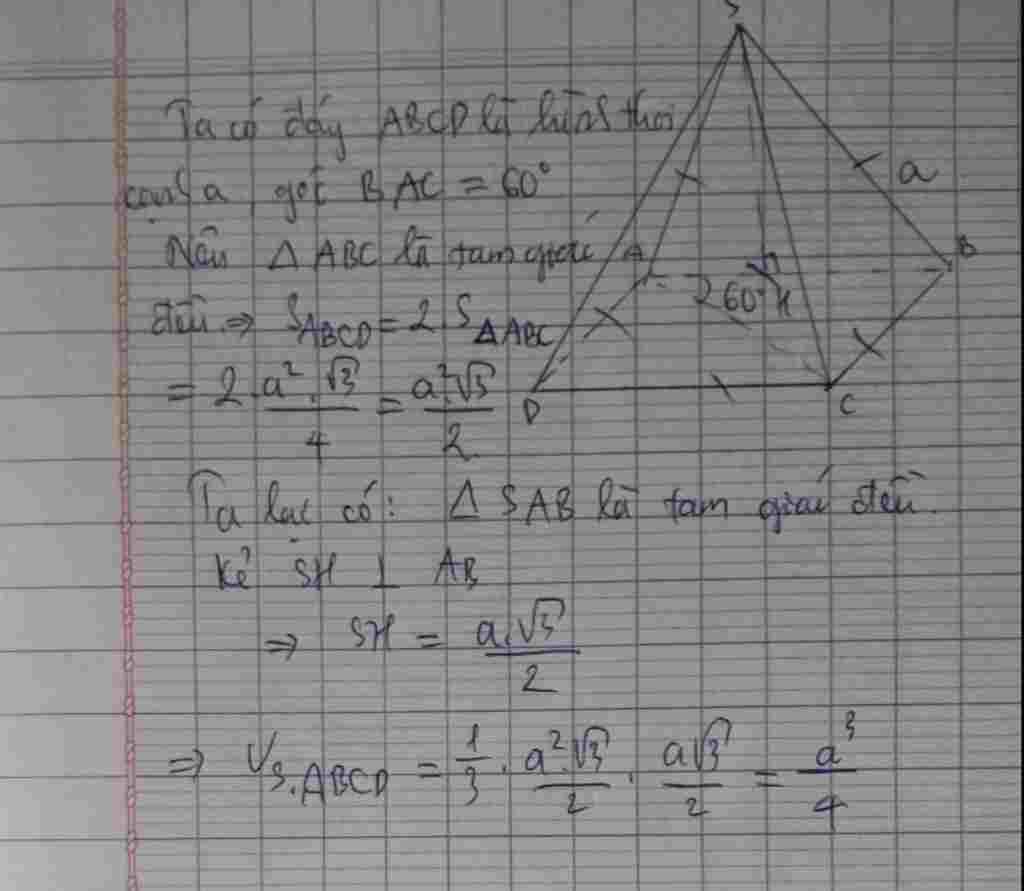 S
Ta có đáy ABCD là hình thoi
cạnh a góc BAC = 60°
a
Nên △ ABC là tam giác
A
B
đều ⇒ S_ABCD = 2 S_△ABC
60°
H
= 2 . a² . √3 / 4 = a² . √3 / 2
D
C
Ta lại có: △ SAB là tam giác đều.
Kẻ SH ⊥ AB
⇒ SH = a . √3 / 2
⇒ V_S.ABCD = 1/3 . a² . √3 / 2 . a√3 / 2 = a³ / 4